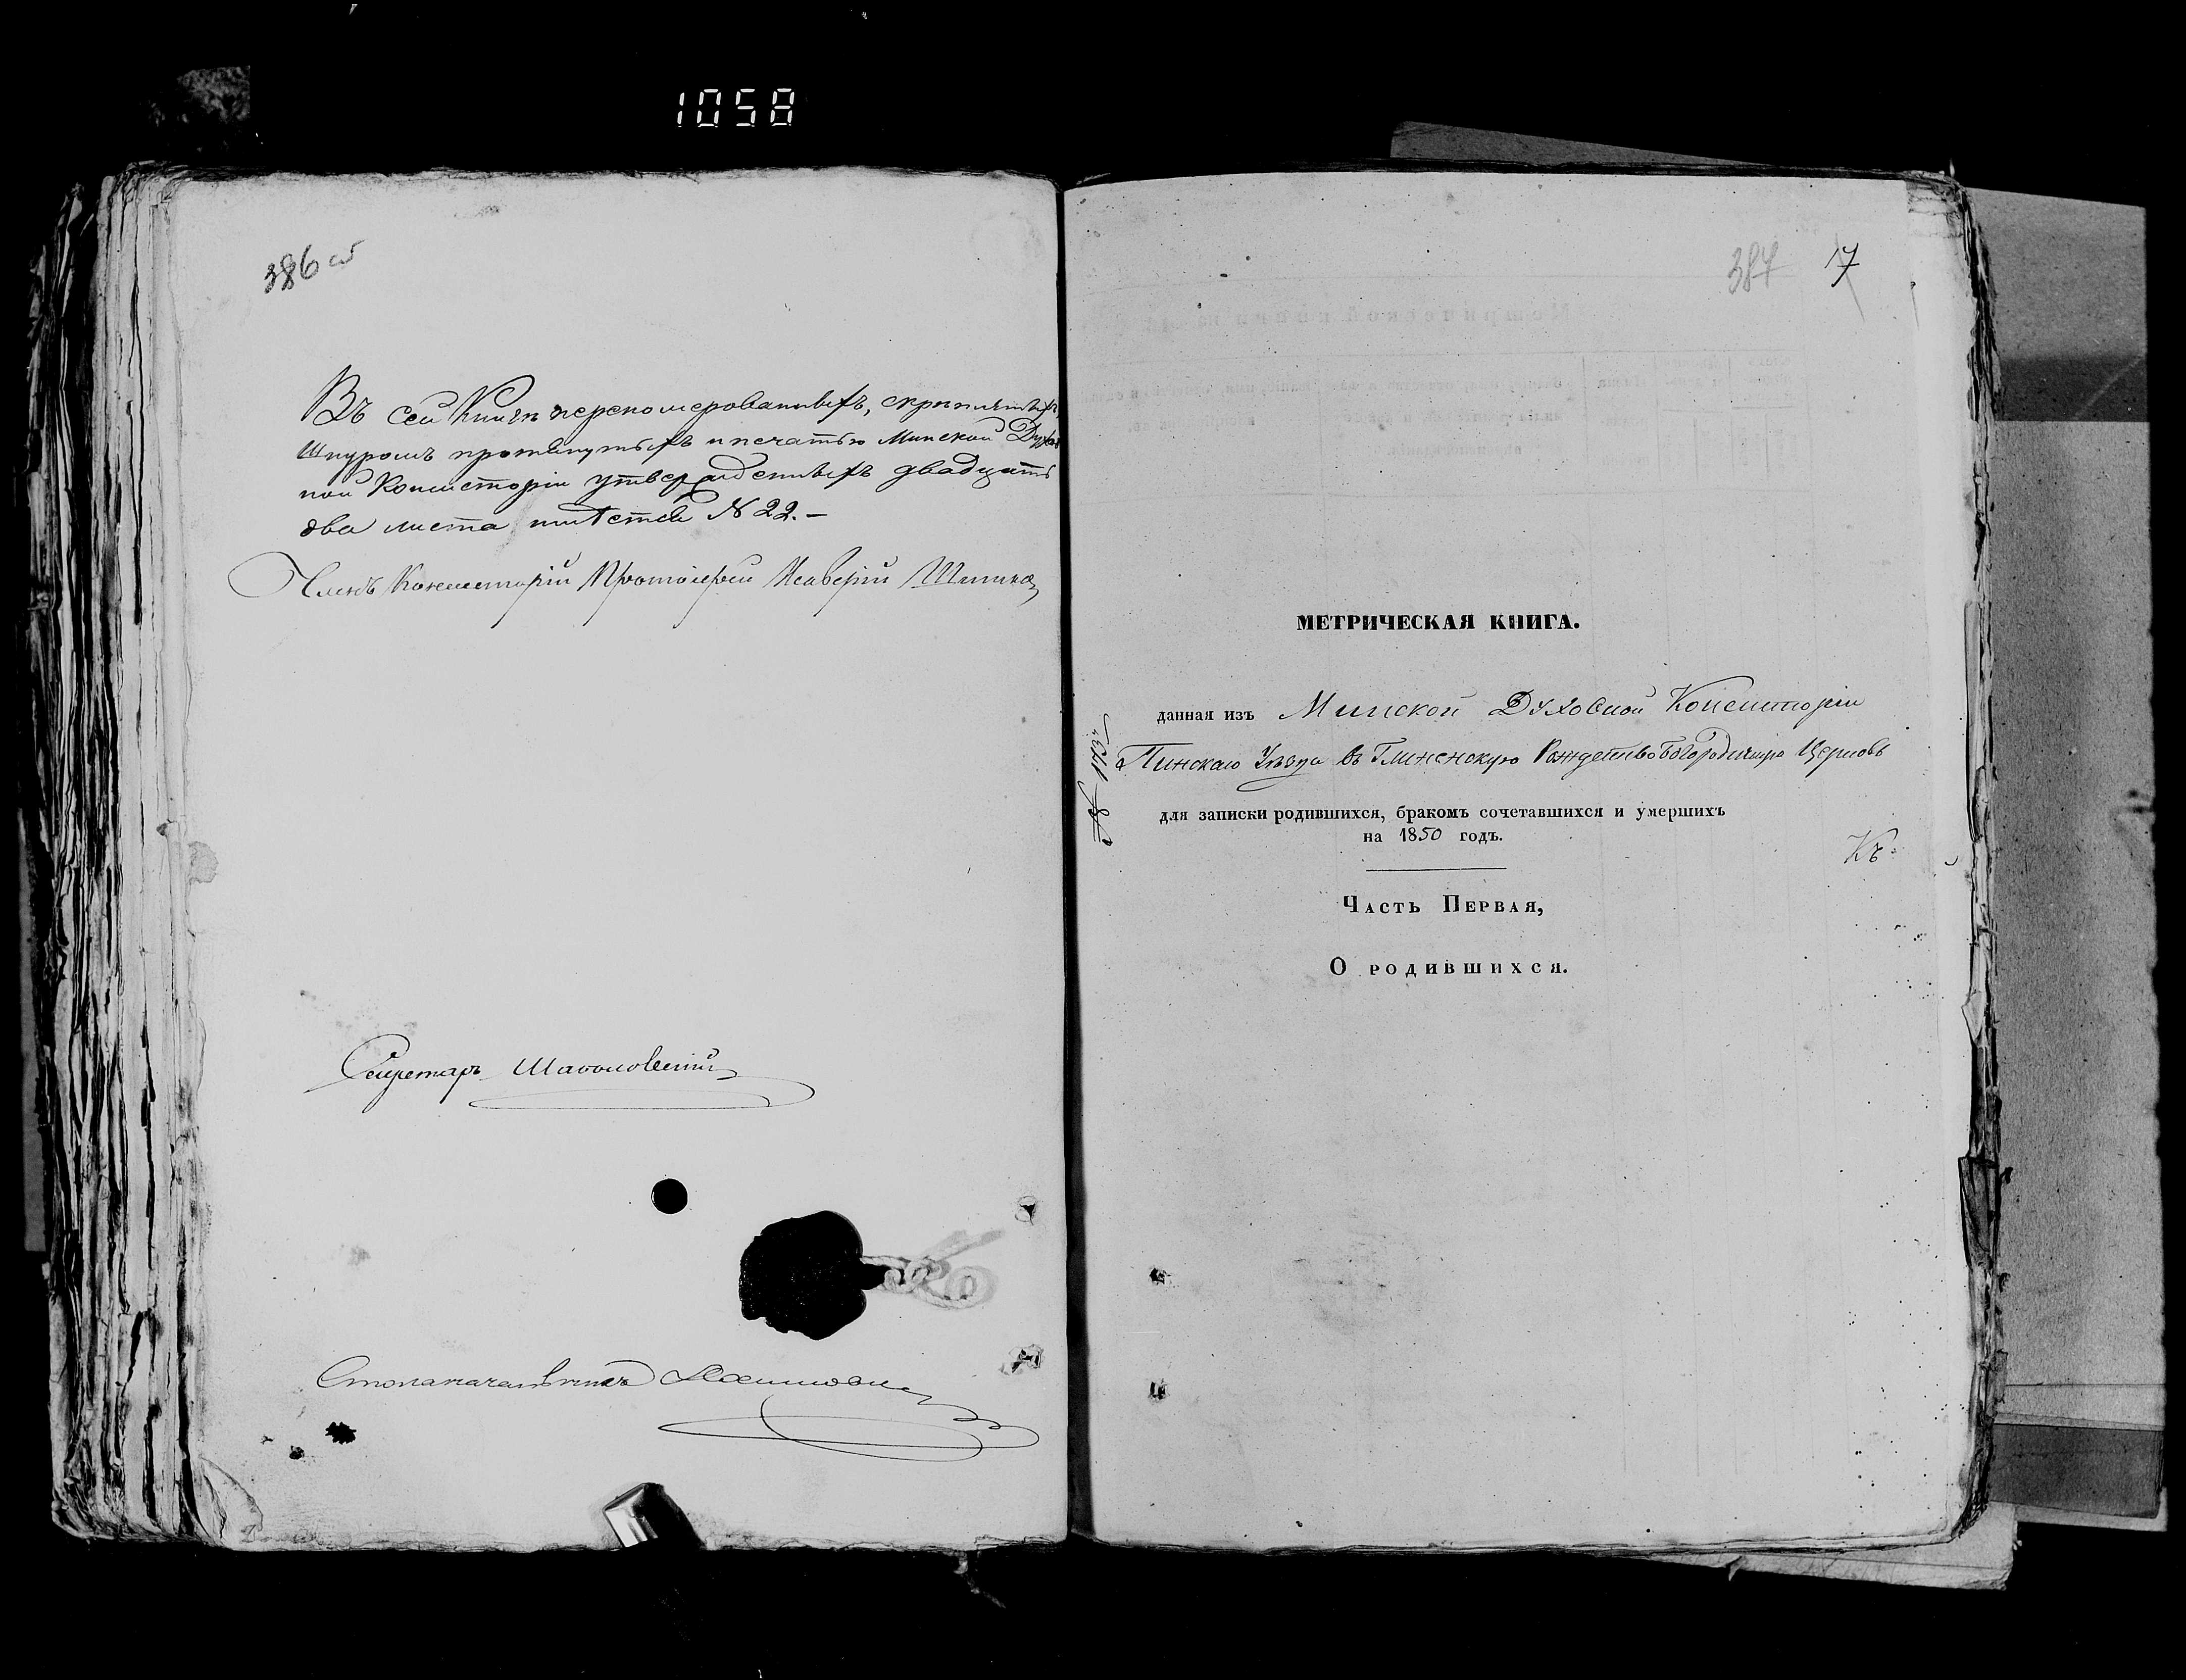 1058
386 об
Въ сей Книгѣ перенумерованныхъ, скрѣпленныхъ,
Шнуромъ протянутыхъ и печатью Минской Духов
ной Консисторіи утвержденныхъ двадцать
два листа № 22.–
Членъ Консисторіи Протоіерей
Секретарь
Столоначальникъ
387 17
МЕТРИЧЕСКАЯ КНИГА.
данная изъ Минской Духовной Консисторіи
Пинскаго Уѣзда въ Рождество Богородичную Церковь
для записки родившихся, бракомъ сочетавшихся и умершихъ
на 1850 годъ.
Къ
Часть Первая,
О родившихся.